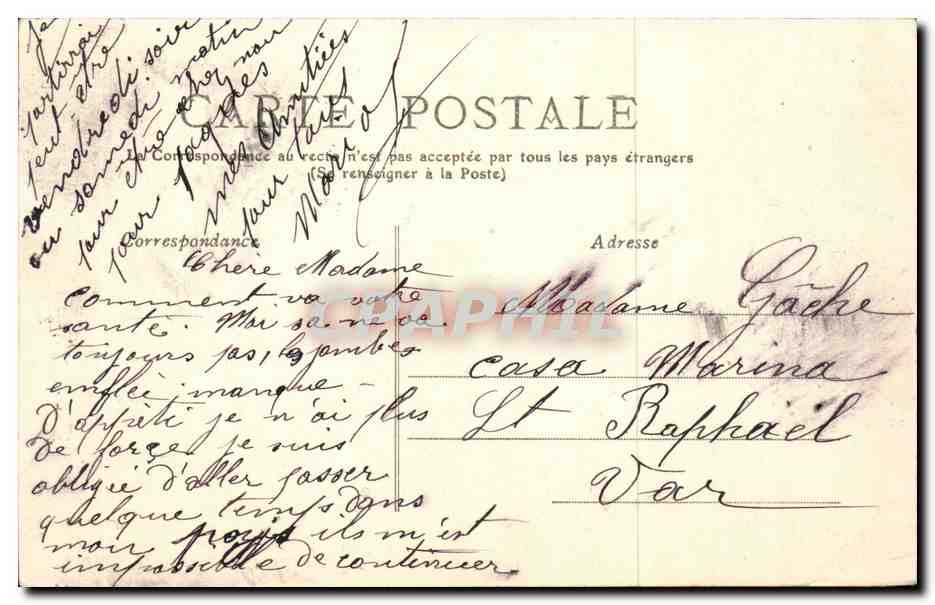 CARTE POSTALE
La Correspondance au recto n'est pas acceptée par tous les pays étrangers
(Se renseigner à la Poste)
Correspondance
Adresse
Chère Madame
comment va votre
santé. Moi sa ne va
toujours pas, les jambes
emflée, manque
D'appéti je n'ai plus
De force je suis
obligée d'aller passer
quelque temps dans
mon pays il m'est
impossible de continuer.
Je
partirai
peut être
vendredi soir
ou samedi matin
pour être chez nou
pour Pâques
mes Amitiées
pour tous
Maria
Madame Gâche
Casa Marina
St Raphaël
Var
CPAPHIL